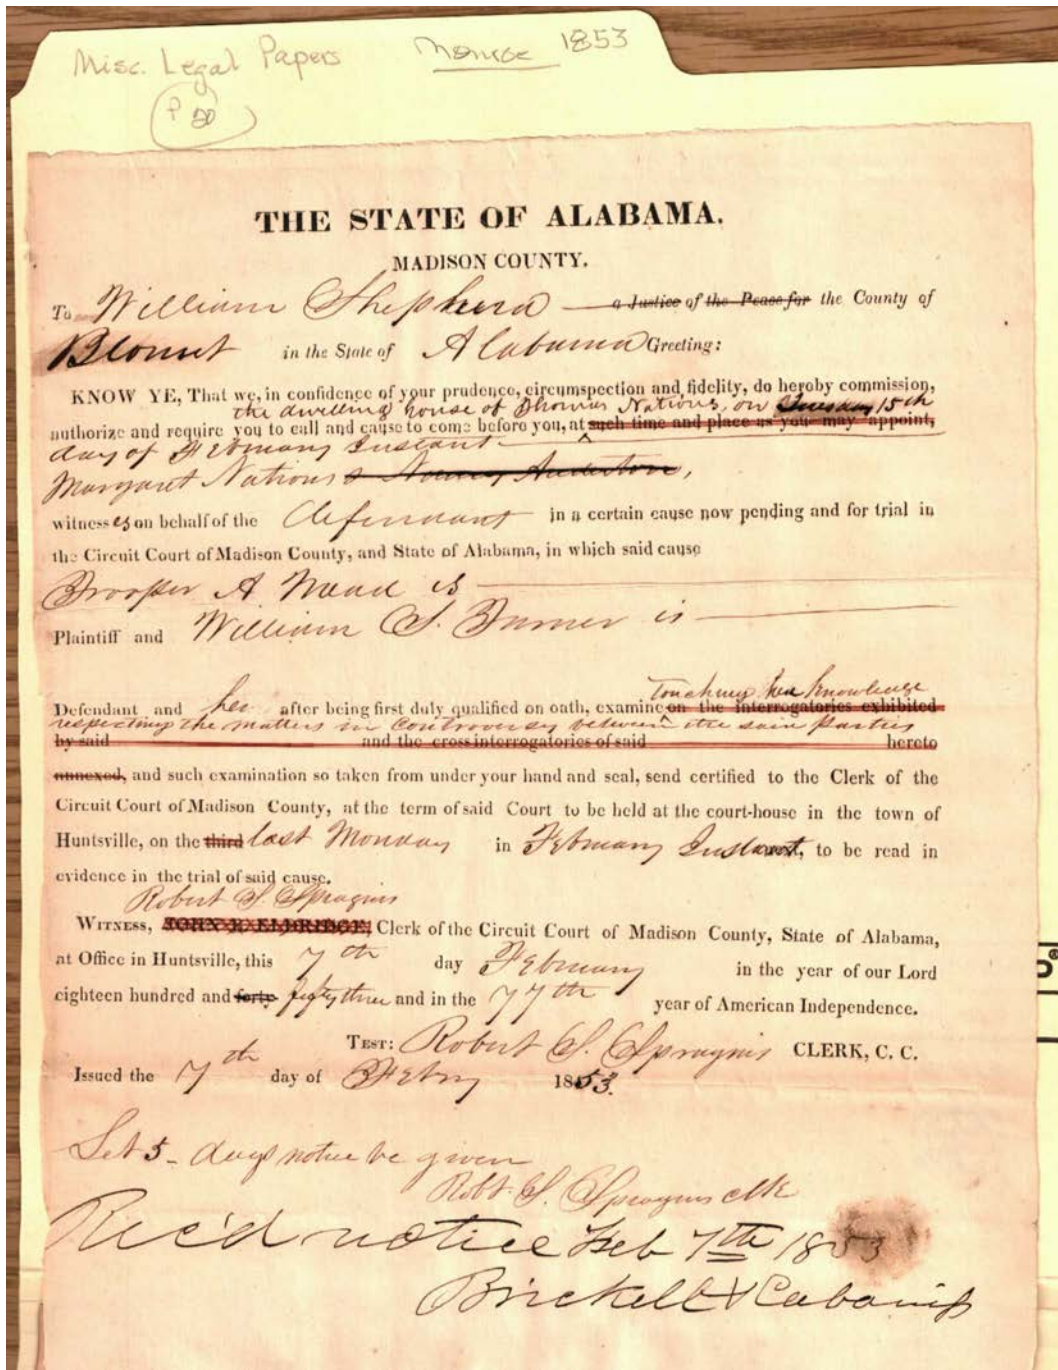 Misc. Legal Papers Monroe 1853
P 20
THE STATE OF ALABAMA.
MADISON COUNTY.
To William Shepherd a Justice of the Peace for the County of
Blount in the State of Alabama Greeting:
KNOW YE, That we, in confidence of your prudence, circumspection and fidelity, do hereby commission,
the dwelling house of Thomas Nations, on Tuesday 15th
authorize and require you to call and cause to come before you, at such time and place as you may appoint,
day of February Instant
Margaret Nations & Nancy Anderton,
witnesses on behalf of the defendant in a certain cause now pending and for trial in
the Circuit Court of Madison County, and State of Alabama, in which said cause
A. Mead is
Plaintiff and William S. Turner is
touching her knowledge
Defendant and her after being first duly qualified on oath, examine on the interrogatories exhibited
respecting the matters in controversy between the said parties
by said and the cross interrogatories of said hereto
annexed, and such examination so taken from under your hand and seal, send certified to the Clerk of the
Circuit Court of Madison County, at the term of said Court to be held at the court-house in the town of
Huntsville, on the third last Monday in February Instant, to be read in
evidence in the trial of said cause.
Robert S. Spragins
WITNESS, JOHN R. ELDRIDGE, Clerk of the Circuit Court of Madison County, State of Alabama,
at Office in Huntsville, this 7th day February in the year of our Lord
eighteen hundred and forty fifty three and in the 77th year of American Independence.
TEST: Robert S. Spragins CLERK, C. C.
Issued the 7th day of Feby 1853.
Let 5 days notice be given
Robt. S. Spragins clk
Rec'd notice Feb 7th 1853
Brickell & Cabaniss